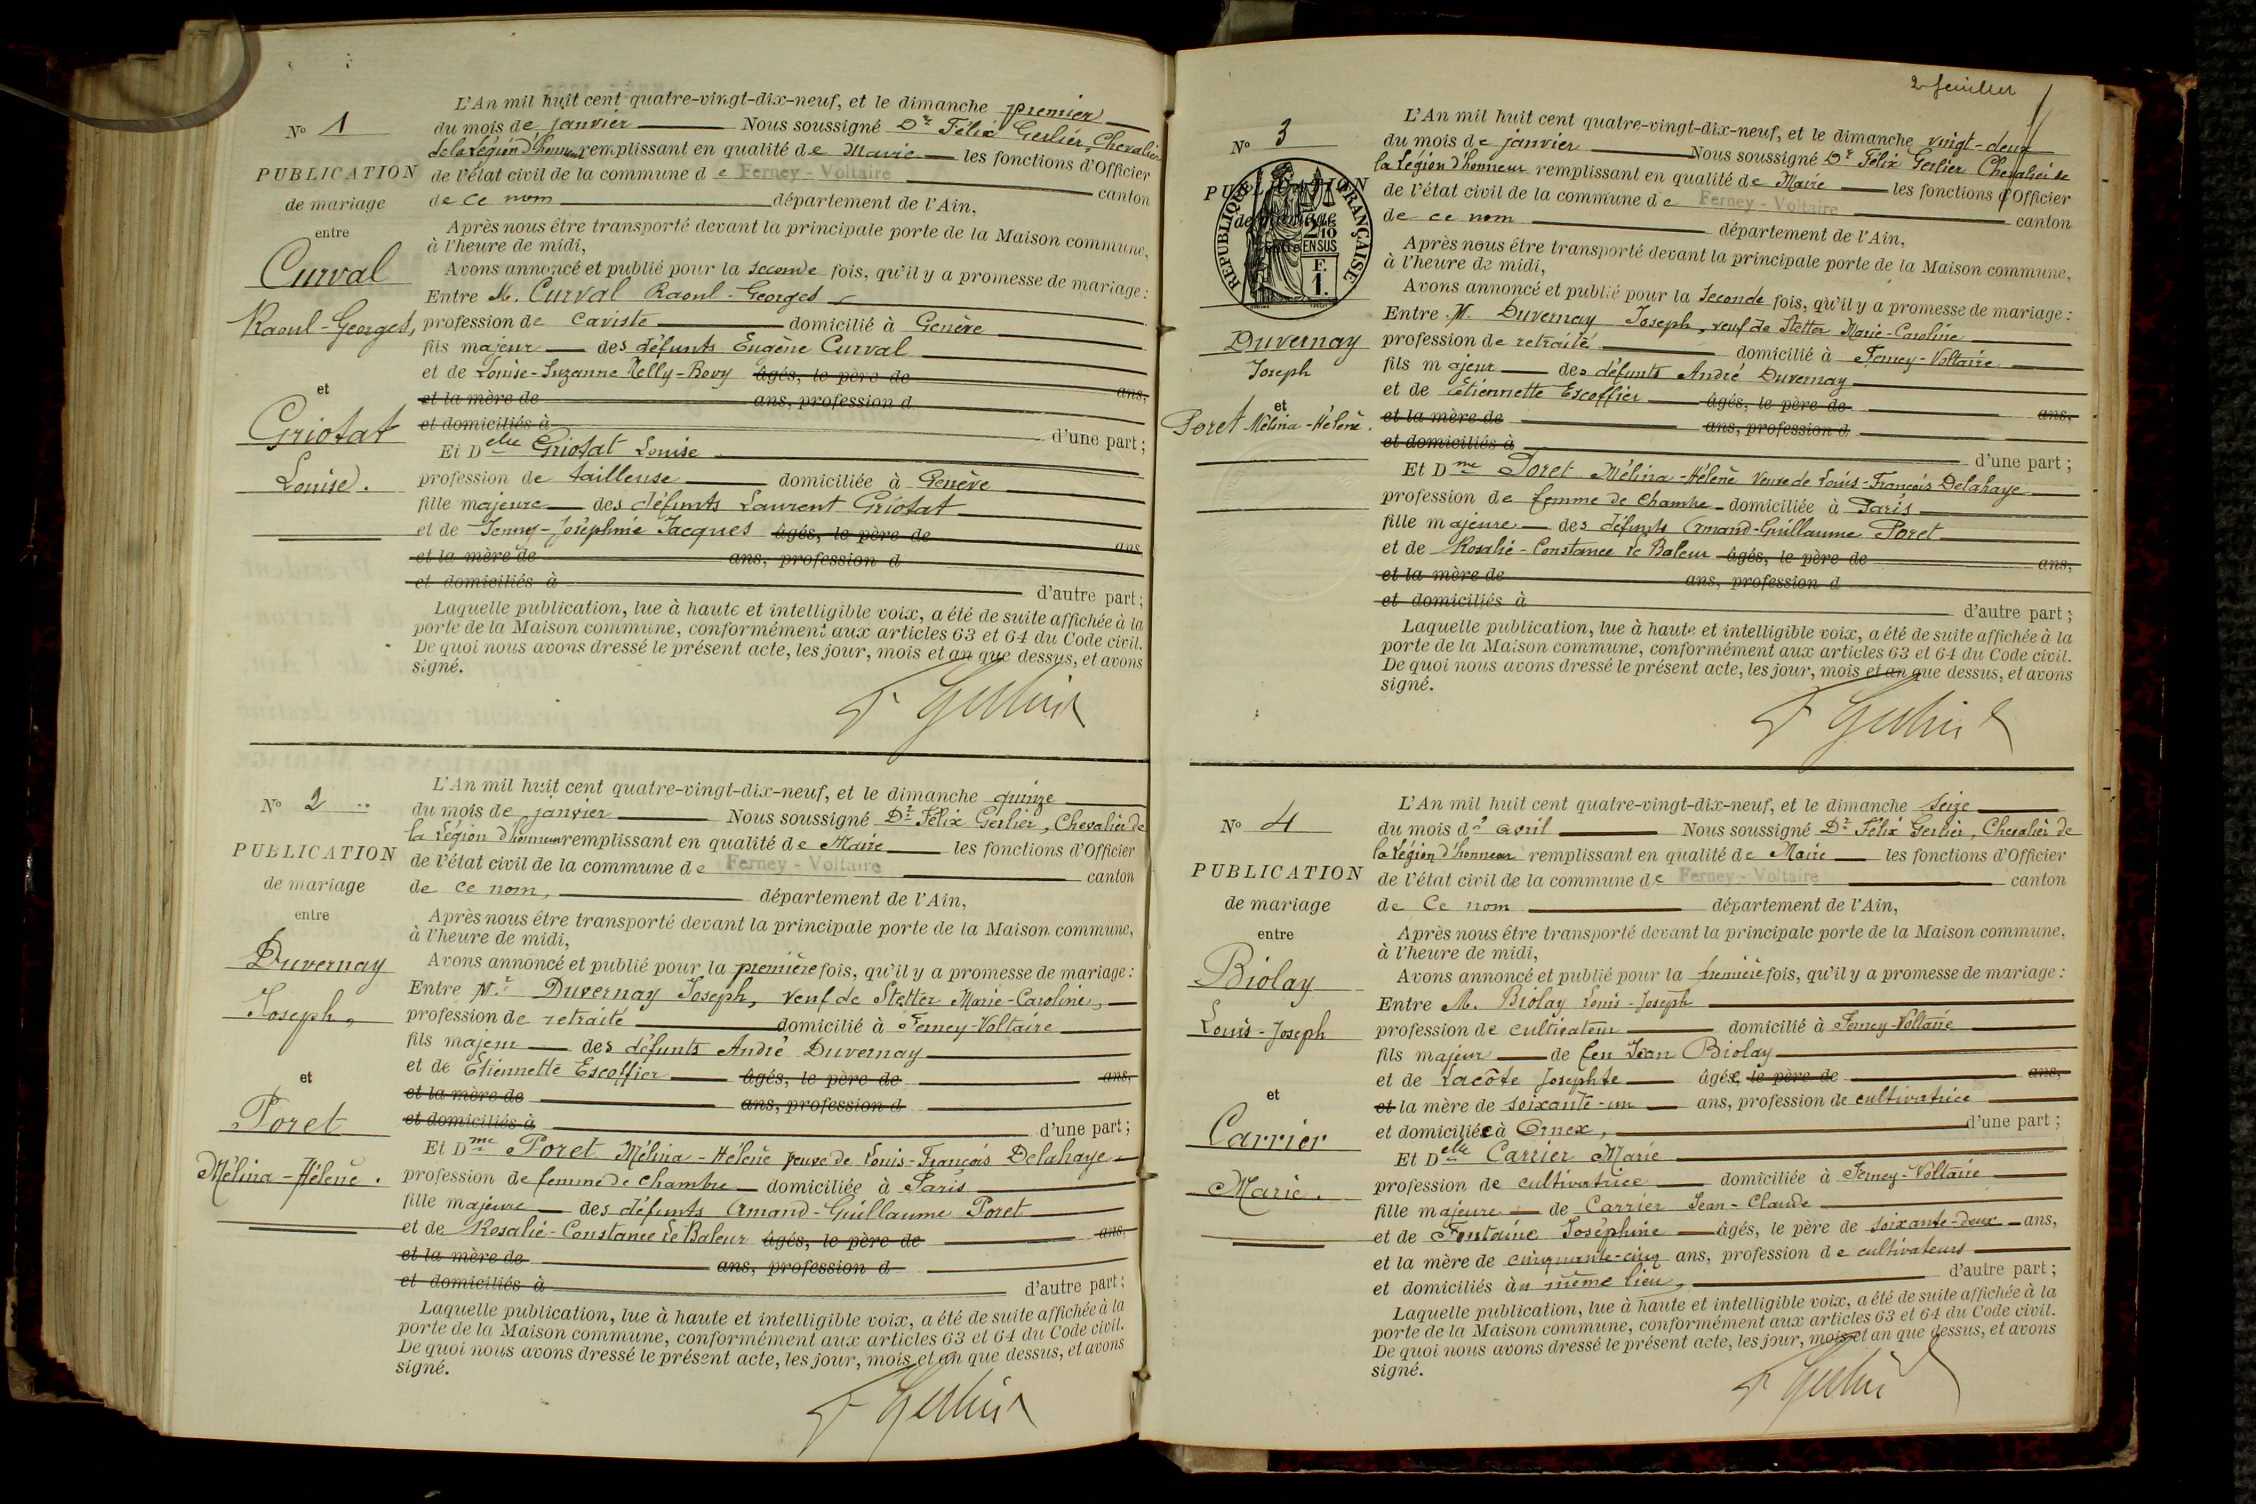 N° 1
PUBLICATION
de mariage
entre
Curval
Raoul-Georges,
et
Griotat
Louise.
L'An mil huit cent quatre-vingt-dix-neuf, et le dimanche premier
du mois de janvier Nous soussigné Dr Félix Gerlier, Chevalier
de la Légion d'honneur remplissant en qualité de Maire les fonctions d'Officier
de l'état civil de la commune de Ferney-Voltaire canton
de ce nom département de l'Ain,
Après nous être transporté devant la principale porte de la Maison commune,
à l'heure de midi,
Avons annoncé et publié pour la seconde fois, qu'il y a promesse de mariage :
Entre M. Curval Raoul-Georges
profession de caviste domicilié à Genève
fils majeur des défunts Eugène Curval
et de Louise-Suzanne Nelly-Bovy âgés, le père de ans,
et la mère de ans, profession d
et domiciliés à d'une part ;
Et Delle Griotat Louise
profession de tailleuse domiciliée à Genève
fille majeure des défunts Laurent Griotat
et de Jenny-Joséphine Jacques âgés, le père de ans
et la mère de ans, profession d
et domiciliés à d'autre part ;
Laquelle publication, lue à haute et intelligible voix, a été de suite affichée à la
porte de la Maison commune, conformément aux articles 63 et 64 du Code civil.
De quoi nous avons dressé le présent acte, les jour, mois et an que dessus, et avons
signé.
F Gerlier
N° 2
PUBLICATION
de mariage
entre
Duvernay
Joseph,
et
Poret
Mélina-Hélène.
L'An mil huit cent quatre-vingt-dix-neuf, et le dimanche quinze
du mois de janvier Nous soussigné Dr Félix Gerlier, Chevalier de
la Légion d'honneur remplissant en qualité de Maire les fonctions d'Officier
de l'état civil de la commune de Ferney-Voltaire canton
de ce nom, département de l'Ain,
Après nous être transporté devant la principale porte de la Maison commune,
à l'heure de midi,
Avons annoncé et publié pour la première fois, qu'il y a promesse de mariage :
Entre Mr Duvernay Joseph, veuf de Stetter Marie-Caroline,
profession de retraité domicilié à Ferney-Voltaire
fils majeur des défunts André Duvernay
et de Etiennette Escoffier âgés, le père de ans,
et la mère de ans, profession d
et domiciliés à d'une part ;
Et Dme Poret Mélina-Hélène veuve de Louis-François Delahaye
profession de femme de chambre domiciliée à Paris
fille majeure des défunts Amand-Guillaume Poret
et de Rosalie-Constance Le Baleur âgés, le père de ans,
et la mère de ans, profession d
et domiciliés à d'autre part ;
Laquelle publication, lue à haute et intelligible voix, a été de suite affichée à la
porte de la Maison commune, conformément aux articles 63 et 64 du Code civil.
De quoi nous avons dressé le présent acte, les jour, mois et an que dessus, et avons
signé.
F Gerlier
2e feuillet
N° 3
PUBLICATION
de mariage
RÉPUBLIQUE FRANÇAISE
2/10
EN SUS
F.
1.
Duvernay
Joseph
et
Poret Mélina-Hélène.
L'An mil huit cent quatre-vingt-dix-neuf, et le dimanche vingt-deux
du mois de janvier Nous soussigné Dr Félix Gerlier Chevalier de
la Légion d'honneur remplissant en qualité de Maire les fonctions d'Officier
de l'état civil de la commune de Ferney-Voltaire canton
de ce nom département de l'Ain,
Après nous être transporté devant la principale porte de la Maison commune,
à l'heure de midi,
Avons annoncé et publié pour la seconde fois, qu'il y a promesse de mariage :
Entre M. Duvernay Joseph, veuf de Stetter Marie-Caroline
profession de retraité domicilié à Ferney-Voltaire
fils majeur des défunts André Duvernay
et de Etiennette Escoffier âgés, le père de ans,
et la mère de ans, profession d
et domiciliés à d'une part ;
Et Dme Poret Mélina-Hélène veuve de Louis-François Delahaye
profession de femme de chambre domiciliée à Paris
fille majeure des défunts Amand-Guillaume Poret
et de Rosalie-Constance Le Baleur âgés, le père de ans,
et la mère de ans, profession d
et domiciliés à d'autre part ;
Laquelle publication, lue à haute et intelligible voix, a été de suite affichée à la
porte de la Maison commune, conformément aux articles 63 et 64 du Code civil.
De quoi nous avons dressé le présent acte, les jour, mois et an que dessus, et avons
signé.
F Gerlier
N° 4
PUBLICATION
de mariage
entre
Biolay
Louis-Joseph
et
Carrier
Marie.
L'An mil huit cent quatre-vingt-dix-neuf, et le dimanche seize
du mois d'avril Nous soussigné Dr Félix Gerlier, Chevalier de
la Légion d'honneur remplissant en qualité de Maire les fonctions d'Officier
de l'état civil de la commune de Ferney-Voltaire canton
de Ce nom département de l'Ain,
Après nous être transporté devant la principale porte de la Maison commune,
à l'heure de midi,
Avons annoncé et publié pour la première fois, qu'il y a promesse de mariage :
Entre M. Biolay Louis-Joseph
profession de cultivateur domicilié à Ferney-Voltaire
fils majeur de feu Jean Biolay
et de Lacôte Josephte âgée, le père de ans,
et la mère de soixante-un ans, profession de cultivatrice
et domiciliée à Ornex, d'une part ;
Et Delle Carrier Marie
profession de cultivatrice domiciliée à Ferney-Voltaire
fille majeure de Carrier Jean-Claude
et de Fontaine Joséphine âgés, le père de soixante-deux ans,
et la mère de cinquante-cinq ans, profession de cultivateurs
et domiciliés au même lieu, d'autre part ;
Laquelle publication, lue à haute et intelligible voix, a été de suite affichée à la
porte de la Maison commune, conformément aux articles 63 et 64 du Code civil.
De quoi nous avons dressé le présent acte, les jour, mois et an que dessus, et avons
signé.
F Gerlier